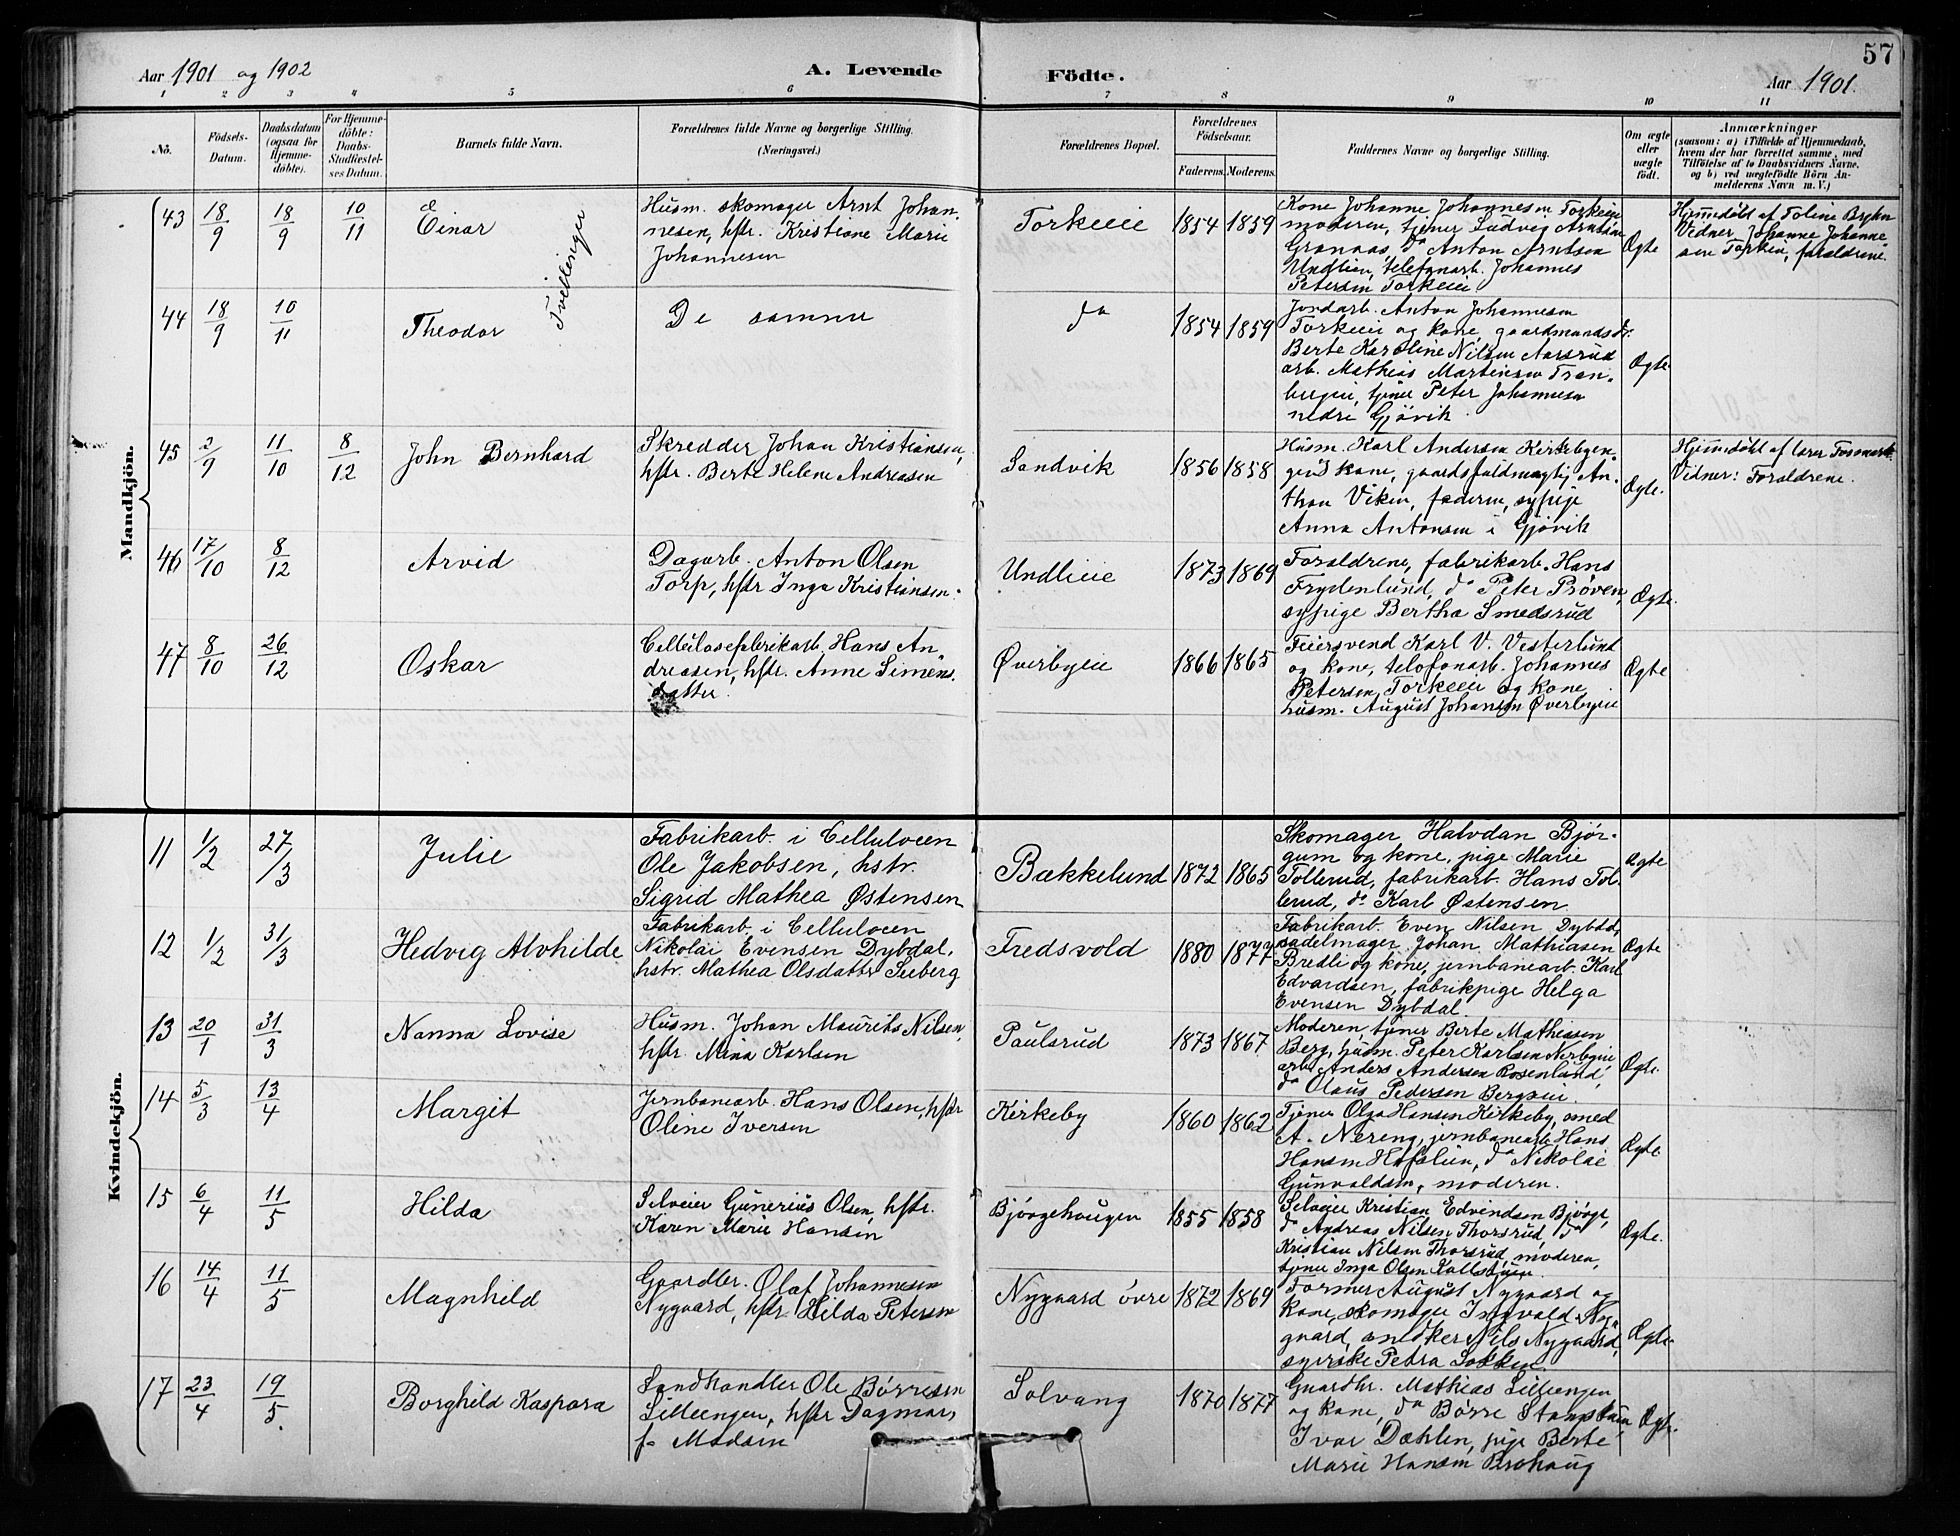 57
Aar 1901 og 1902
A. Levende Födte.
Aar 1901.
1 2 3 4 5 6 7 8 9 10 11
No.
Födsels-Datum.
Daabsdatum (ogsaa for Hjemme-döbte).
For Hjemme-döbte: Daabs-Stadfæstel-ses Datum.
Barnets fulde Navn.
Forældrenes fulde Navne og borgerlige Stilling.
(Næringsvei.)
Forældrenes Bopæl.
Forældrenes Födselsaar.
Faderens. Moderens.
Faddernes Navne og borgerlige Stilling.
Om ægte eller uægte födt.
Anmærkninger
(saasom: a) i Tilfælde af Hjemmedaab,
hvem der har forrettet samme, med
Tilföielse af to Daabsvidners Navne,
og b) ved uægtefödte Börn An-
melderens Navn m. V.)
Mandkjön.
43 18/9 18/9 10/11 Einar
Tvillinger
Husm. skomager Arnt Johan-
nesen, hstr. Kristiane Marie
Johannesen
Torkeeie 1854 1859
Kone Johanne Johannesen Torkeeie
moderen, tjener Ludvig Arntsen
Granaas, do Anton Arntsen
Undlien, telefonarb. Johannes
Petersen Torkeeie
Ægte
Hjemmedøbt af Toline
Vidner Johanne Johanne-
sen Torkeie, forældrene.
44 18/9 10/11 Theodor
De samme
do 1854 1859
Jordarb. Anton Johannesen
Torkeeie og kone, gaardmandsdr.
Berte Karoline Nilsen Aarsrud
arb. Mathias Martinsen Tran-
bergeie, tjener Peter Johannesen
nedre Gjøvik
Ægte
45 2/9 11/10 8/12 John Bernhard
Skredder Johan Kristiansen,
hstr. Berte Helene Andreasen
Sandvik 1856 1858
Husm. Karl Andersen Kirkebyen-
gens kone, gaardsfuldmægtig An-
thon Viken, faderen, sypige
Anna Antonsen i Gjøvik
Ægte.
Hjemmedøbt af lærer
Vidner: Forældrene.
46 17/10 8/12 Arvid
Dagarb. Anton Olsen
Torp, hstr Inga Kristiansen.
Undlieie 1873 1869
Forældrene, fabrikarb. Hans
Frydenlund, do Peter Prøven,
sypige Bertha Smedsrud
Ægte.
47 8/10 26/12 Oskar
Cellulosefabrikarb. Hans An-
dreasen, hstr. Anne Simens-
datter.
Øverbyeie 1866 1865
Feiersvend Karl V. Vesterlund
og kone, telefonarb. Johannes
Petersen, Torkeeie og kone,
husm. August Johansen Øverbyeie
Ægte
Kvindekjön.
11 1/2 27/3 Julie
Fabrikarb. i Celluloeen
Ole Jakobsen, hstr.
Sigrid Mathea Østensen
Bækkelund 1872 1865
Skomager Halvdan Bjør-
gum og kone, pige Marie
Tollerud, fabrikarb. Hans Tol-
lerud, do Karl Østensen
Ægte
12 1/2 31/3 Hedvig Alvhilde
Fabrikarb. i Celluloeen
Nikolai Evensen Dybdal,
hstr. Mathea Olsdatter Seeberg
Fredsvold 1880 1877
Fabrikarb. Even Nilsen Dybdal,
sadelmager Johan Mathiasen
Bredli og kone, jernbanearb. Karl
Edvardsen, fabrikpige Helga
Evensen Dybdal.
Ægte
13 20/1 31/3 Nanna Lovise
Husm. Johan Maurits Nilsen,
hstr. Mina Karlsen
Paulsrud 1873 1867
Moderen, tjener Berte Mathiasen
Berg, husm. Peter Karlsen Nerbyeie
arb. Anders Andersen Rosenlund,
do Olaus Pedersen Bergseie.
Ægte.
14 5/3 13/4 Margit
Jernbanearb. Hans Olsen, hstr
Oline Iversen
Kirkeby 1860 1862
Tjener Olga Hansen Kirkeby, smed
A. Nereng, jernbanearb. Hans
Hansen Hofslien, do Nikolai
Gunvaldsen, moderen.
Ægte.
15 6/4 11/5 Hilda
Selveier Gunerius Olsen, hstr.
Karen Marie Hansen
Bjørgehaugen 1855 1858
Selveier Kristian Edvindsen Bjørge,
do Andreas Nilsen Thorsrud, do
Kristian Nilsen Thorsrud, moderen,
tjener Inga Olsen
Ægte.
16 14/4 11/5 Magnhild
Gaardbr. Olaf Johannesen
Nygaard, hstr. Hilda Petersen
Nygaard övre 1872 1869
Former August Nygaard og
kone, skomager Ingvald Ny-
gaard, snedker Nils Nygaard,
syerske Petra Sokken.
Ægte.
17 23/4 19/5. Borghild Kaspara
Landhandler Ole Børresen
Lilleengen, hstr Dagmar,
f. Madsen
Solvang 1870 1877
Gaardbr. Mathias Lilleengen
og kone, do Børre
Ivar Dæhlen, pige Berte
Marie Hansen Brohaug
Ægte.